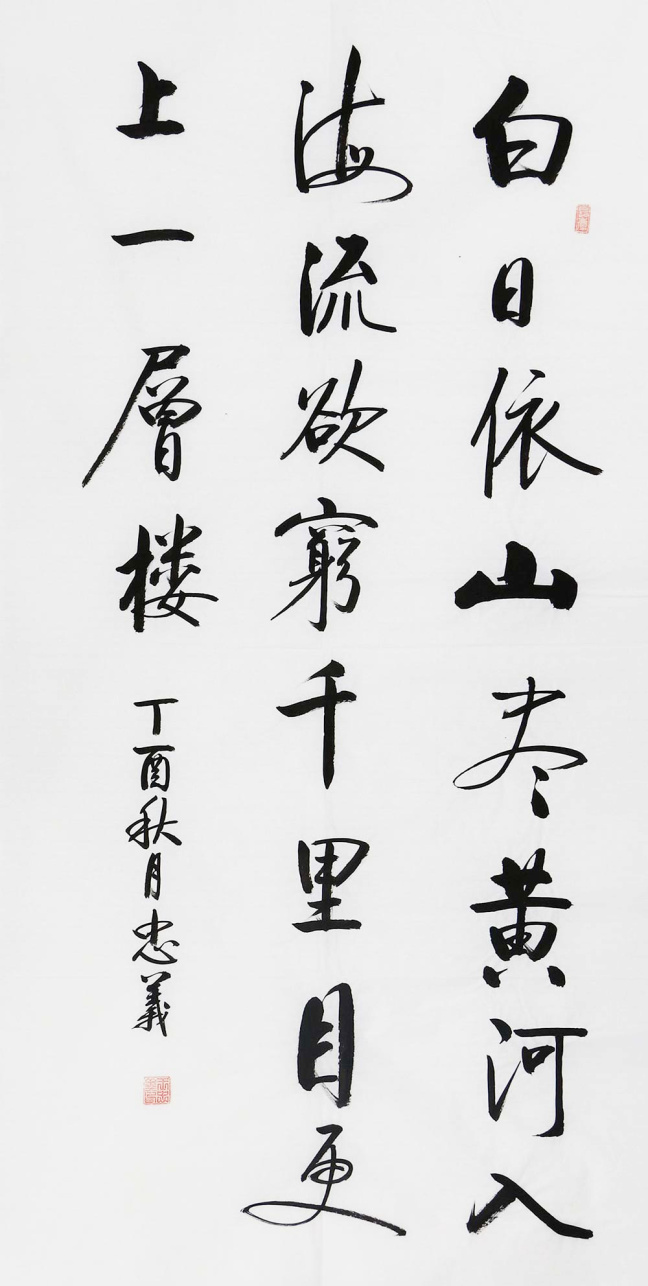 白日依山尽黄河入
海流欲窮千里目更
上一層楼
丁酉秋月忠義